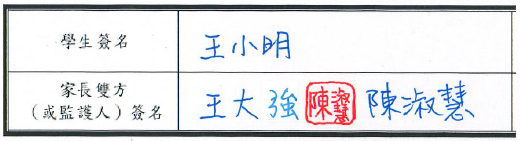 學生簽名 王小明
家長雙方
(或監護人)簽名 王大強 陳淑慧 陳淑慧